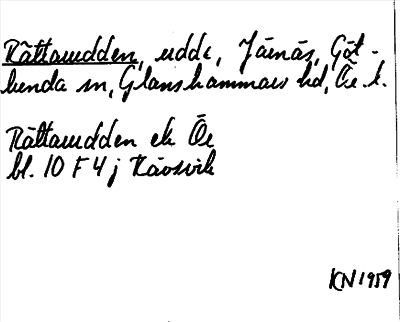 Råttaudden, udde, Järnäs, Göt-
lunda sn, Glanshammars hd, Ör. l.
Råttaudden ek Ör
bl. 10 F 4 j Kåosvik
KN 1959